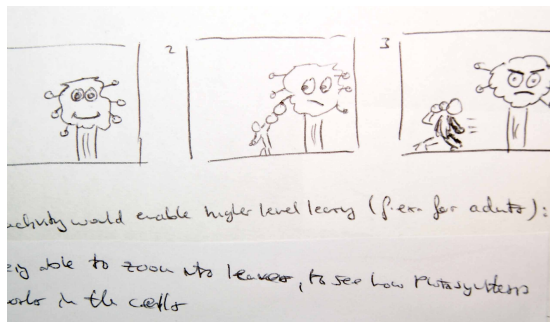 2
3
activity would enable higher level learning (f.ex. for adults):
able to zoom into leaves, to see how Photosynthesis
works in the cells